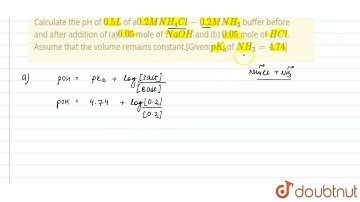 Calculate the pH of 0.5L of a0.2M NH4Cl − 0.2M NH3 buffer before
and after addition of (a)0.05 mole of NaOH and (b) 0.05 mole of HCl.
Assume that the volume remains constant.[Given:pKb of NH3 = 4.74]
a) pOH = pKb + log [Salt]
[Base]
NH4Cl + NH3
pOH = 4.74 + log [0.2]
[0.2]
doubtnut